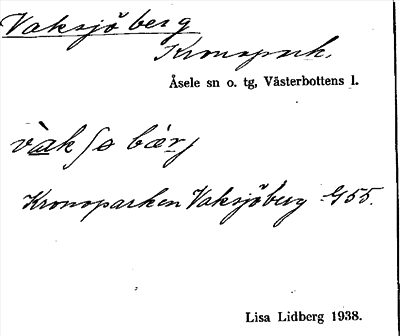 Vaksjöberg
Kronopark.
Åsele sn o. tg, Västerbottens l.
vàkʃøbærj
Kronoparken Vaksjöberg G55.
Lisa Lidberg 1938.